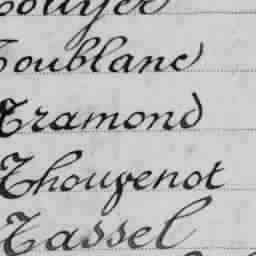 Toublanc
Tramond
Thouvenot
Tassel